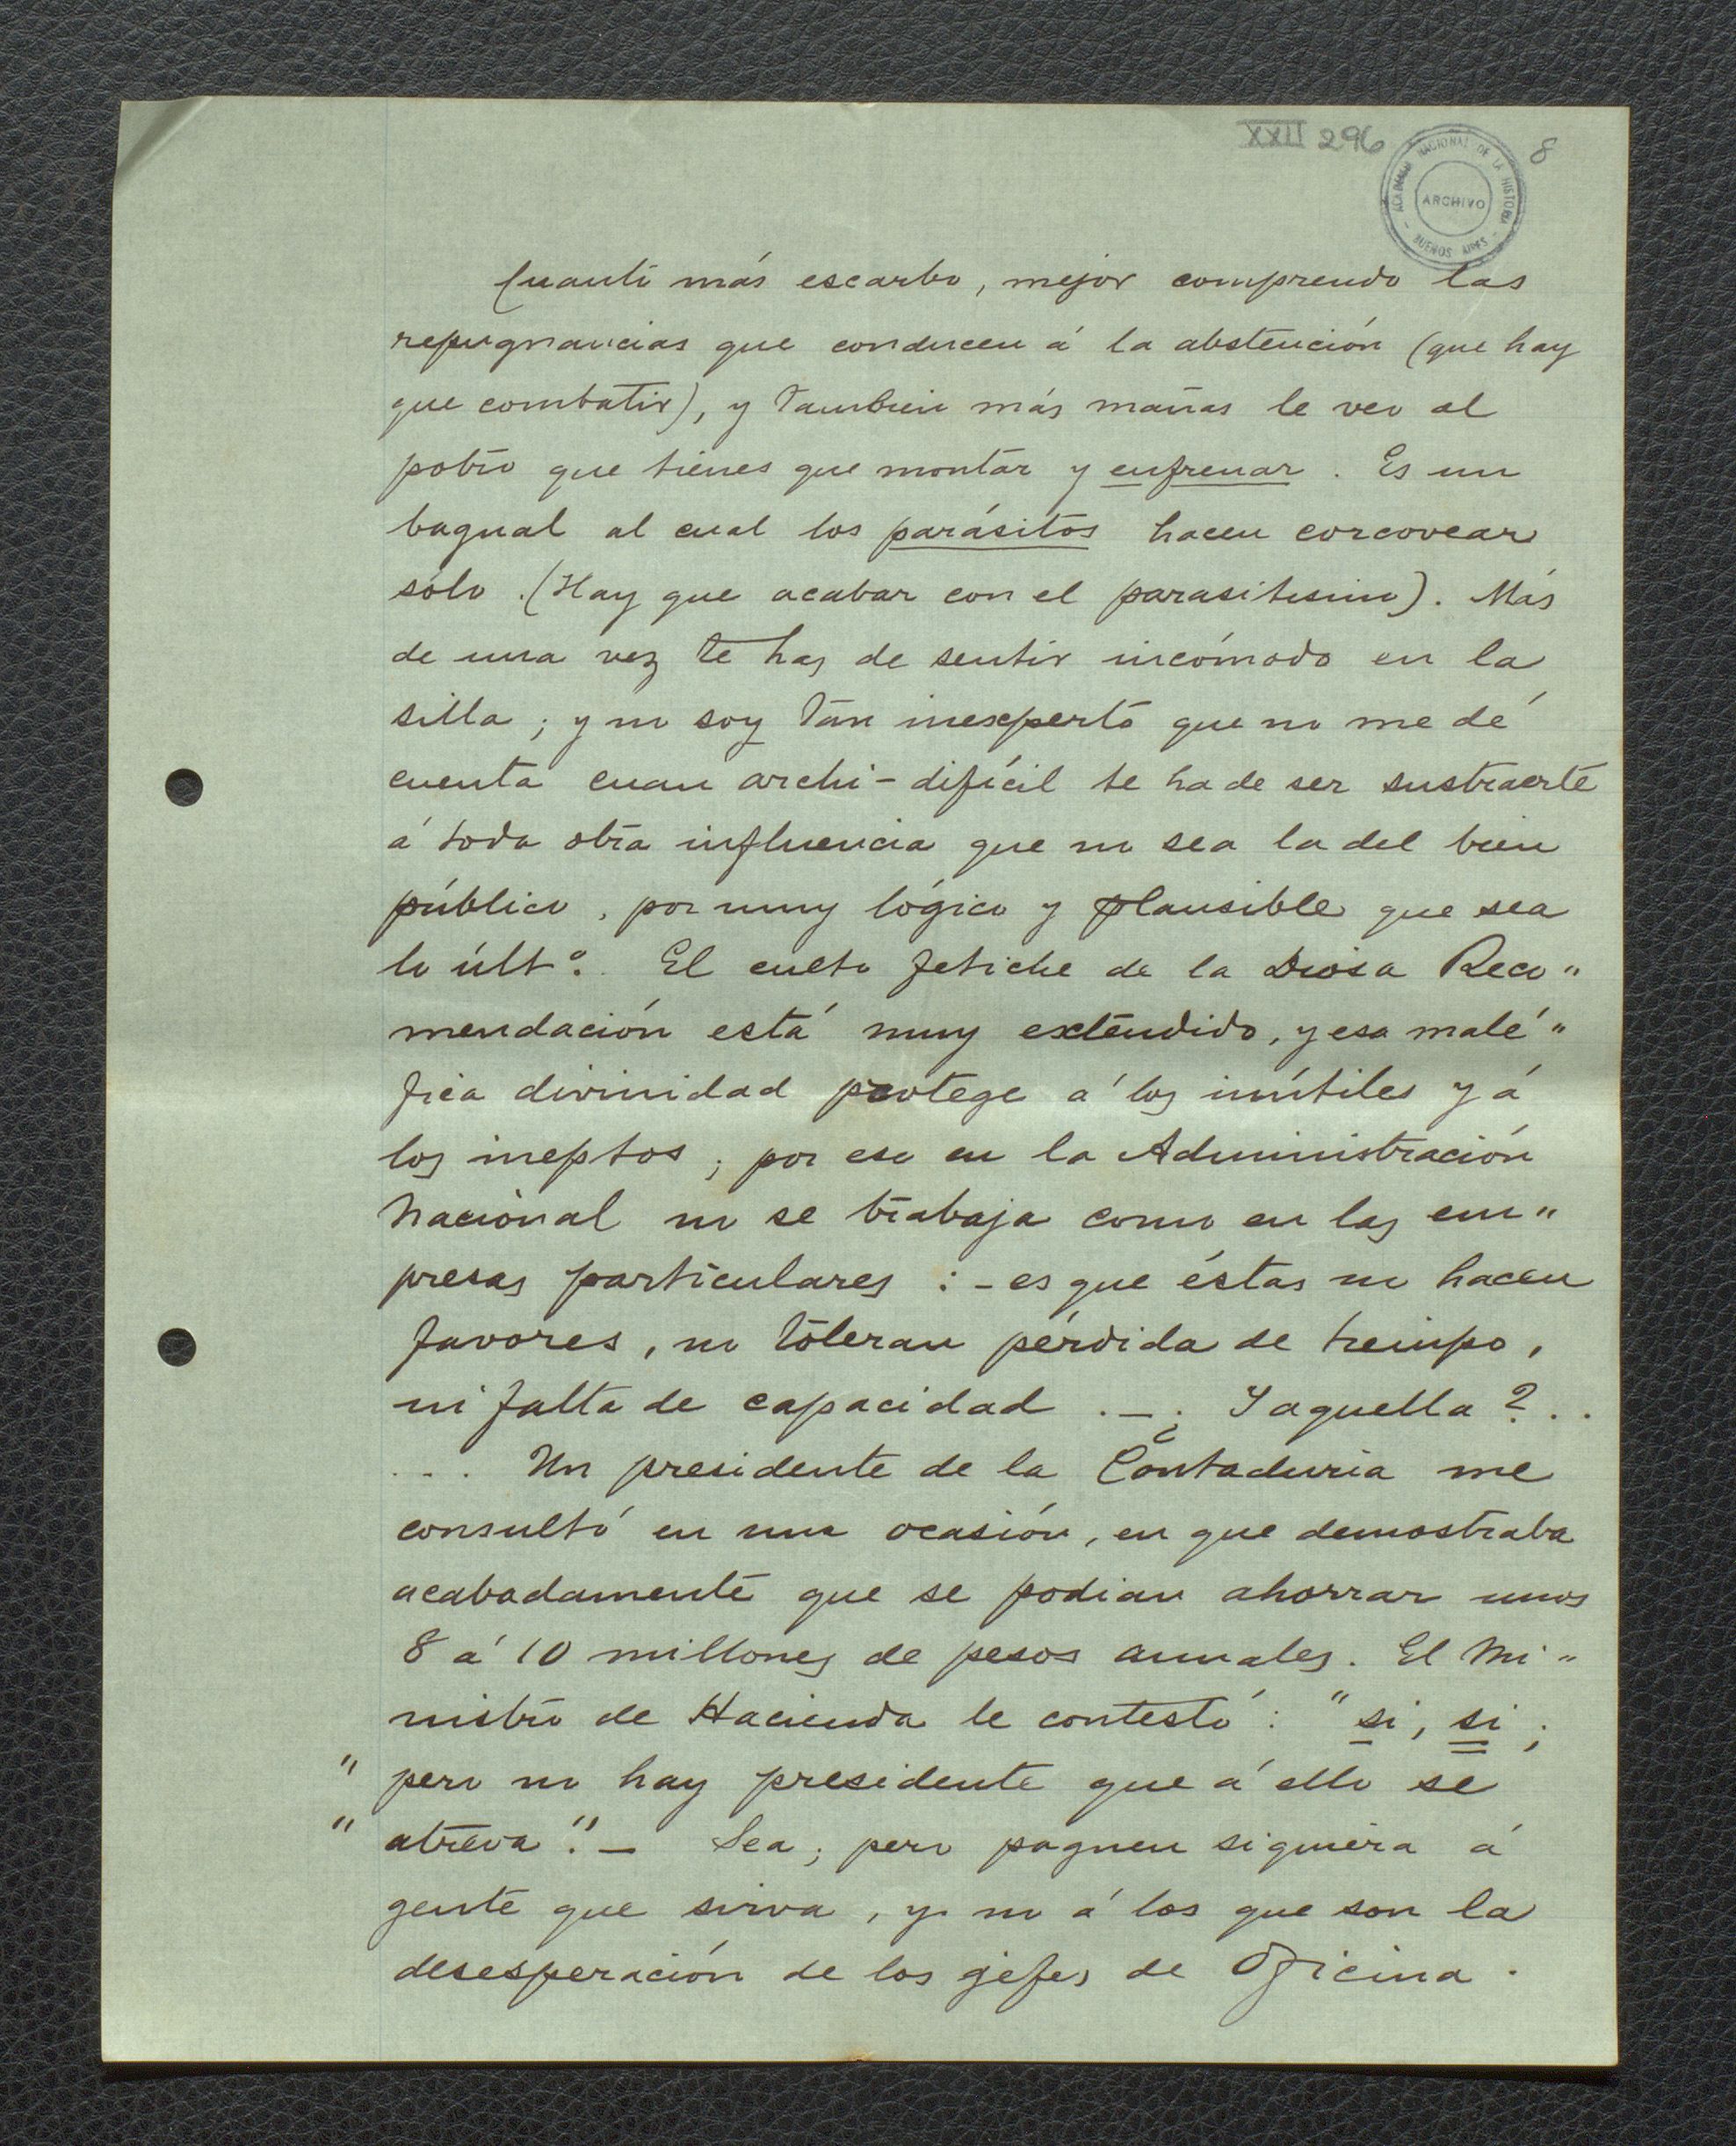 XXII 296
8
ACADEMIA NACIONAL DE LA HISTORIA
ARCHIVO
- BUENOS AIRES -
Cuanto más escarbo, mejor comprendo las
repugnancias que conducen á la abstención (que hay
que combatir), y tambien más mañas le veo al
potro que tienes que montar y enfrenar. Es un
bagual al cual los parásitos hacen corcovear
sólo. (Hay que acabar con el parasitismo). Más
de una vez te has de sentir incómodo en la
silla; y no soy tan inexperto que no me dé
cuenta cuan archi-difícil te ha de ser sustraerte
á toda otra influencia que no sea la del bien
público, por muy lógico y plausible que sea
lo últº. El culto fetiche de la Diosa Reco"
mendación está muy extendido, y esa malé"
fica divinidad protege á los inútiles y á
los ineptos; por eso en la Administración
Nacional no se trabaja como en las em"
presas particulares :- es que éstas no hacen
favores, no toleran pérdida de tiempo,
ni falta de capacidad .-¿ Y aquella ?..
... Un presidente de la Contaduria me
consultó en una ocasión, en que demostraba
acabadamente que se podian ahorrar unos
8 á 10 millones de pesos anuales. El Mi"
nistro de Hacienda le contestó: "si, si;
" pero no hay presidente que á ello se
" atreva".- Sea; pero paguen siquiera á
gente que sirva, y no á los que son la
desesperación de los gefes de Oficina.